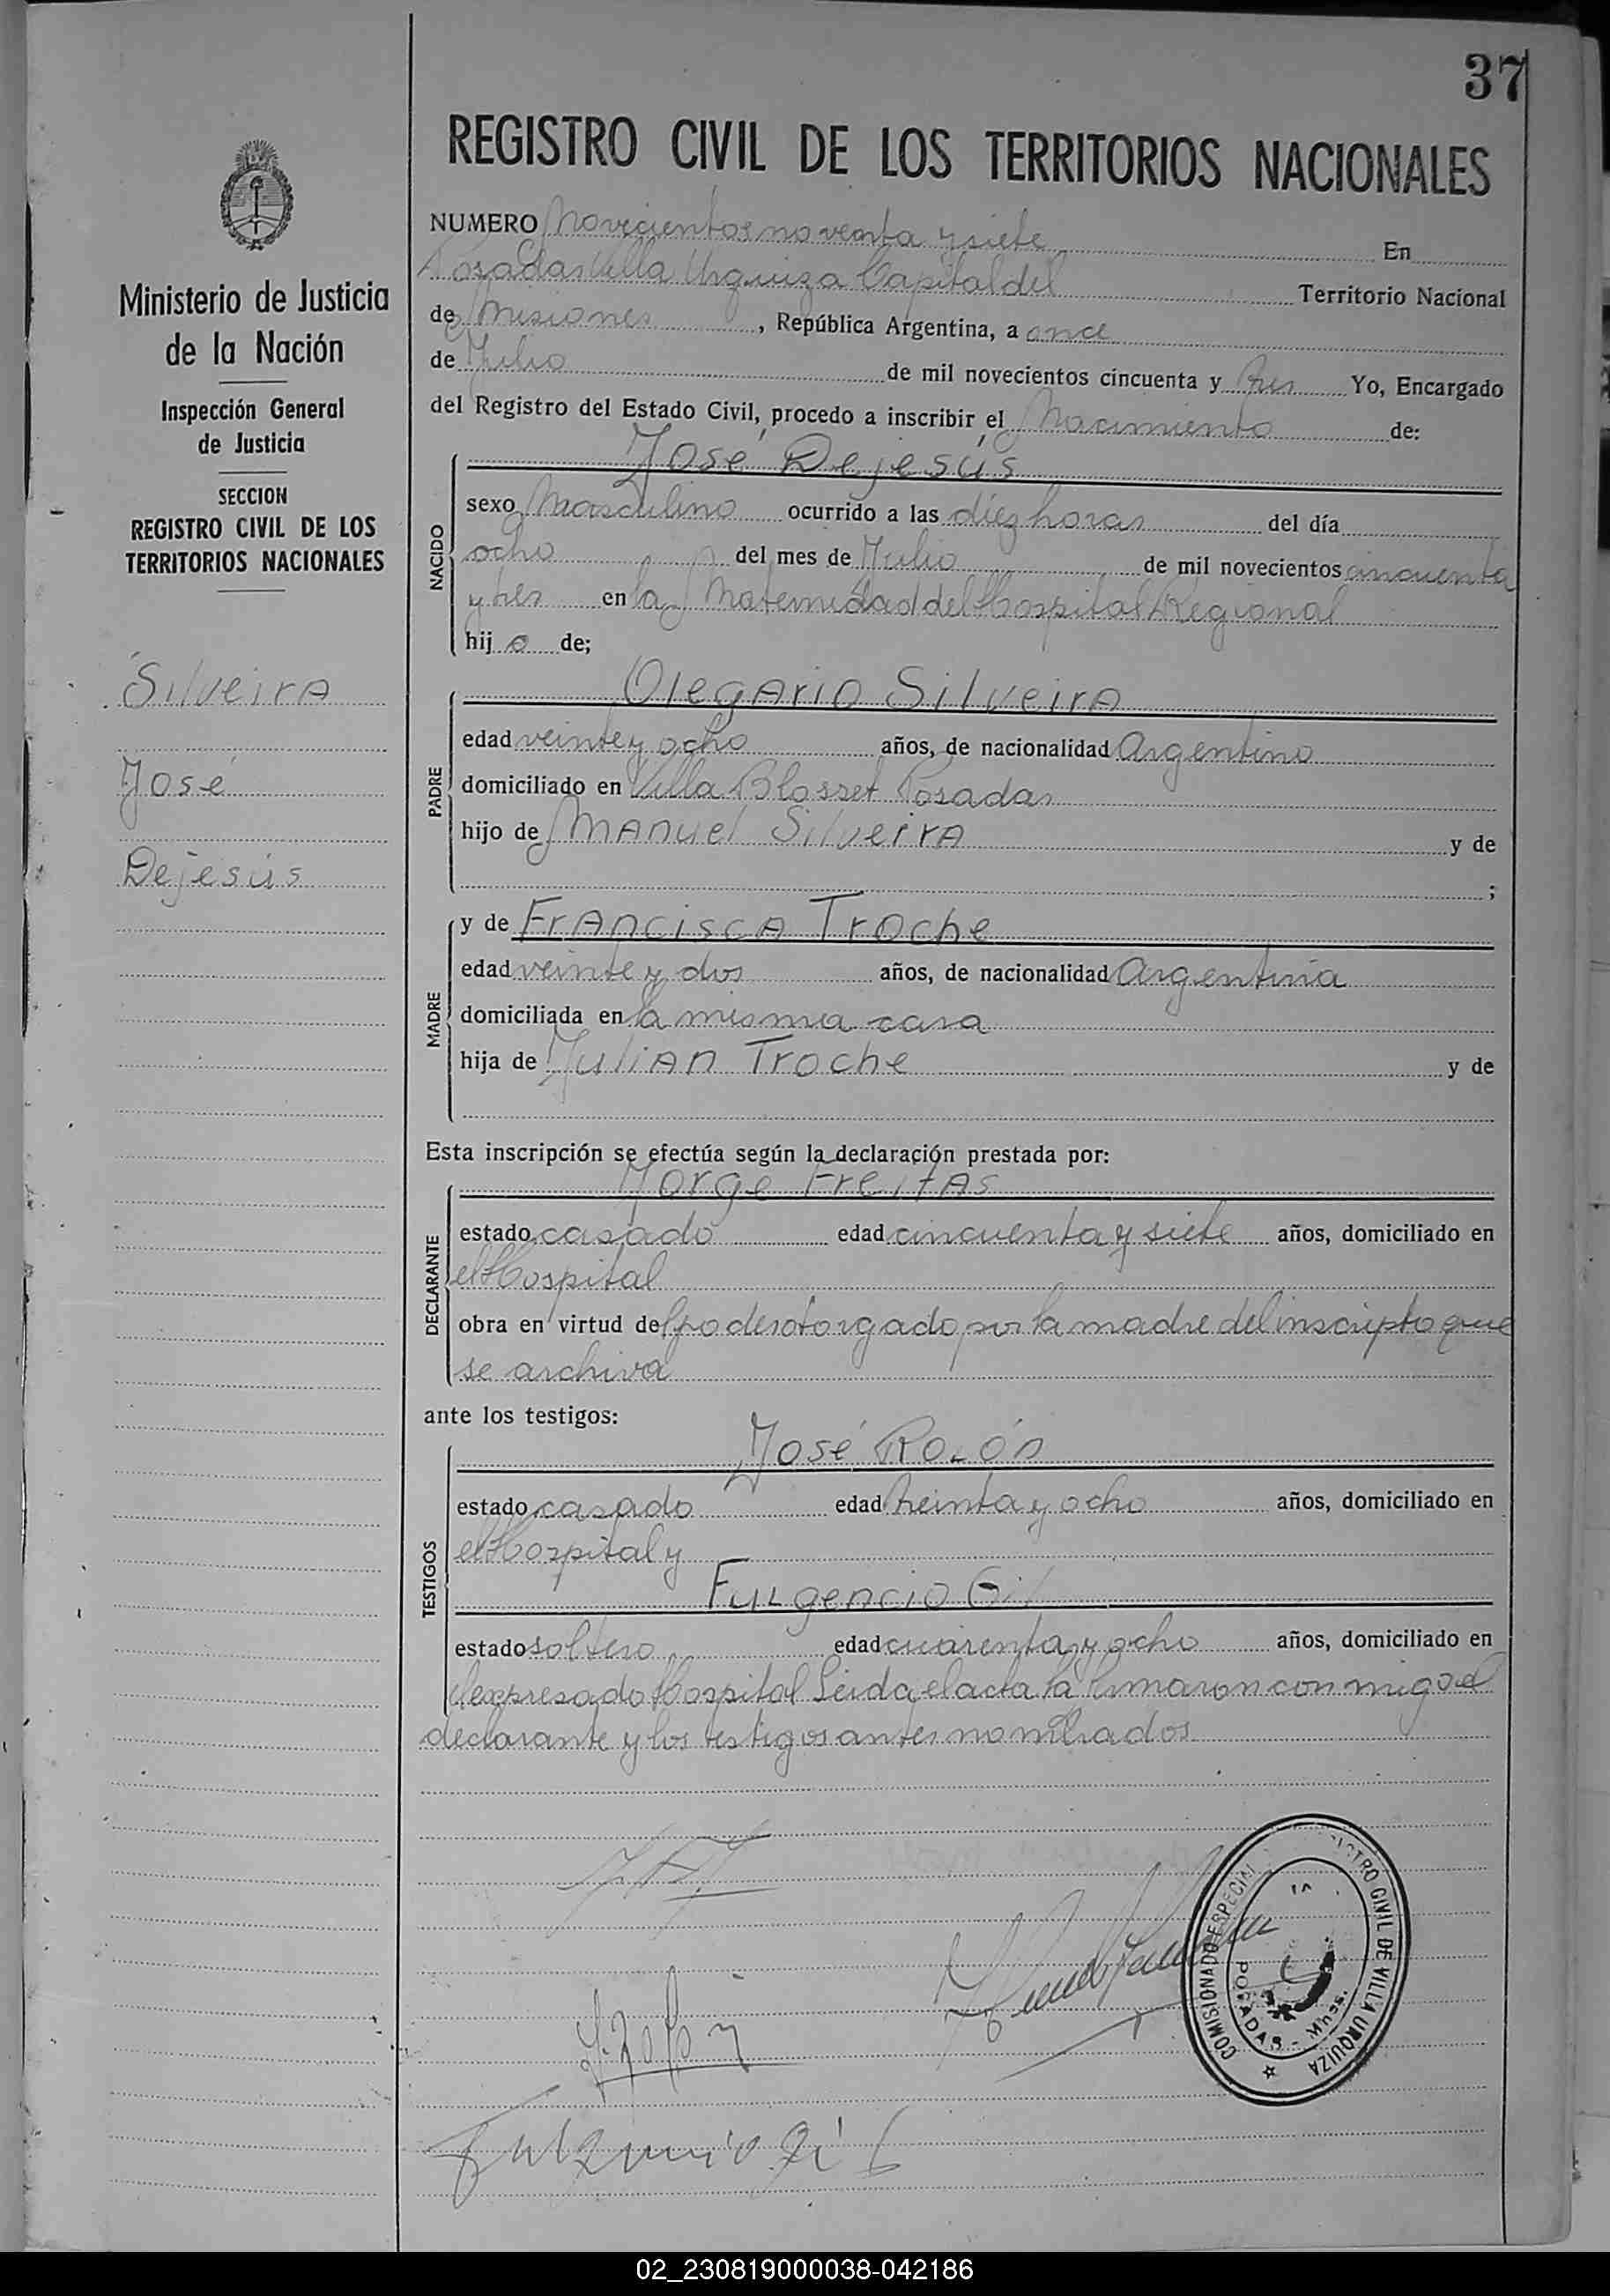 37
REGISTRO CIVIL DE LOS TERRITORIOS NACIONALES
Ministerio de Justicia
de la Nación
Inspección General
de Justicia
SECCION
REGISTRO CIVIL DE LOS
TERRITORIOS NACIONALES
Silveira
José
Dejesús
NUMERO Novecientos noventa y siete En
Posadas Villa Urquiza Capital del Territorio Nacional
de Misiones, República Argentina, a once
de Julio de mil novecientos cincuenta y tres Yo, Encargado
del Registro del Estado Civil, procedo a inscribir el Nacimiento de:
José Dejesús
NACIDO
sexo Masculino ocurrido a las diez horas del día
ocho del mes de Julio de mil novecientos cincuenta
y tres en la Maternidad del Hospital Regional
hijo de;
Olegario Silveira
PADRE
edad veinte y ocho años, de nacionalidad Argentino
domiciliado en Villa Blosset Posadas
hijo de Manuel Silveira y de
;
MADRE
y de Francisca Troche
edad veinte y dos años, de nacionalidad Argentina
domiciliada en la misma casa
hija de Julian Troche y de
Esta inscripción se efectúa según la declaración prestada por:
Jorge Freitas
DECLARANTE
estado casado edad cincuenta y siete años, domiciliado en
el Hospital
obra en virtud del poder otorgado por la madre del inscripto que
se archiva
ante los testigos:
José Rolón
TESTIGOS
estado casado edad treinta y ocho años, domiciliado en
el Hospital y
Fulgencio Gil
estado soltero edad cuarenta y ocho años, domiciliado en
el expresado Hospital Leida el acta la firmaron conmigo el
declarante y los testigos antes nombrados
COMISIONADO ESPECIAL
CIVIL DE VILLA URQUIZA
POSADAS - Mnes.
J. Rolón
Fulgencio Gil
02_230819000038-042186